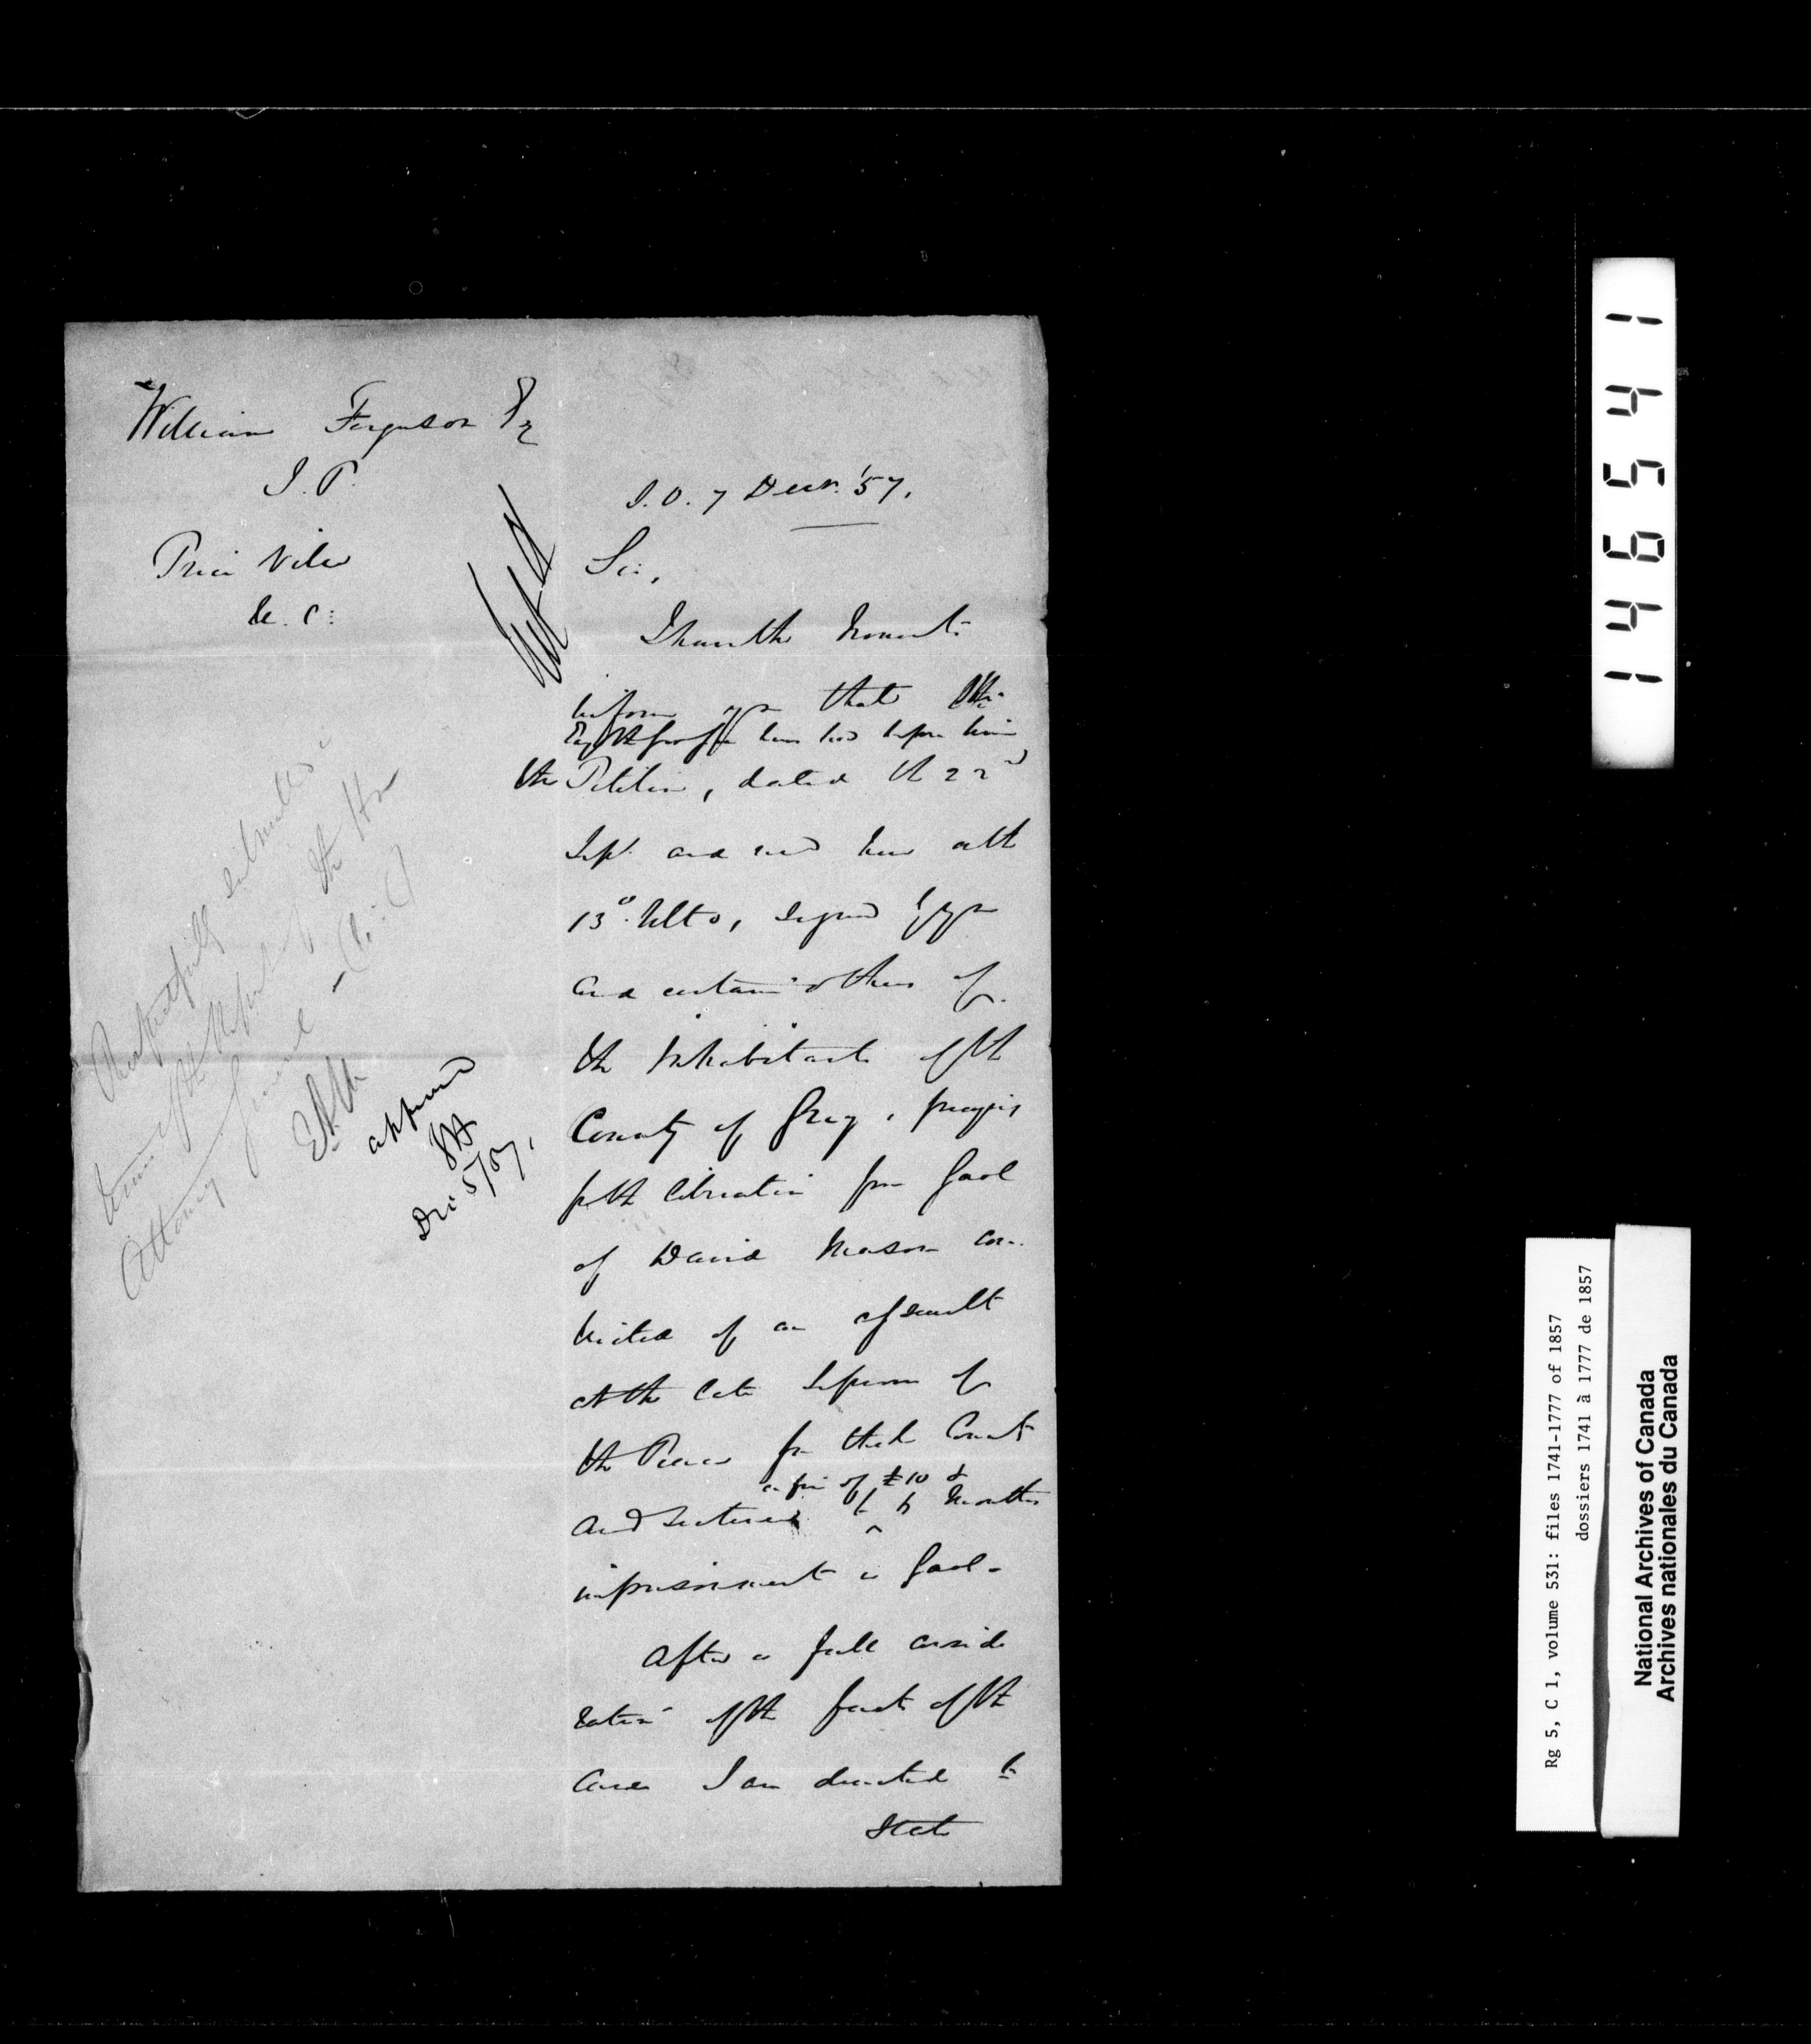 William Ferguson Esq
J. P.
Price Ville
U. C:
S. O. 7 Decr. '57.
Sir,
I have the honor to
inform you that
has had before him
the Petition, dated the 22d
Sept. and recd here on the
13th Ulto, signed by you
and certain others of
the Inhabitants of the
County of Grey, praying
for the liberation from Gaol
of David Mason con
victed of an assault
at the late Sessions of
the Peace for that County
and sentenced to 6 Months
a fine of £10 &
imprisonment in Gaol.
After a full conside
ration of the facts of the
Case I am directed to
State
Respectfully submitted in
terms of the Report of the Hon
Attorney General - (U: C)
approved
Dec 5/57.
146541
Rg 5, C 1, volume 531: files 1741-1777 of 1857
dossiers 1741 à 1777 de 1857
National Archives of Canada
Archives nationales du Canada